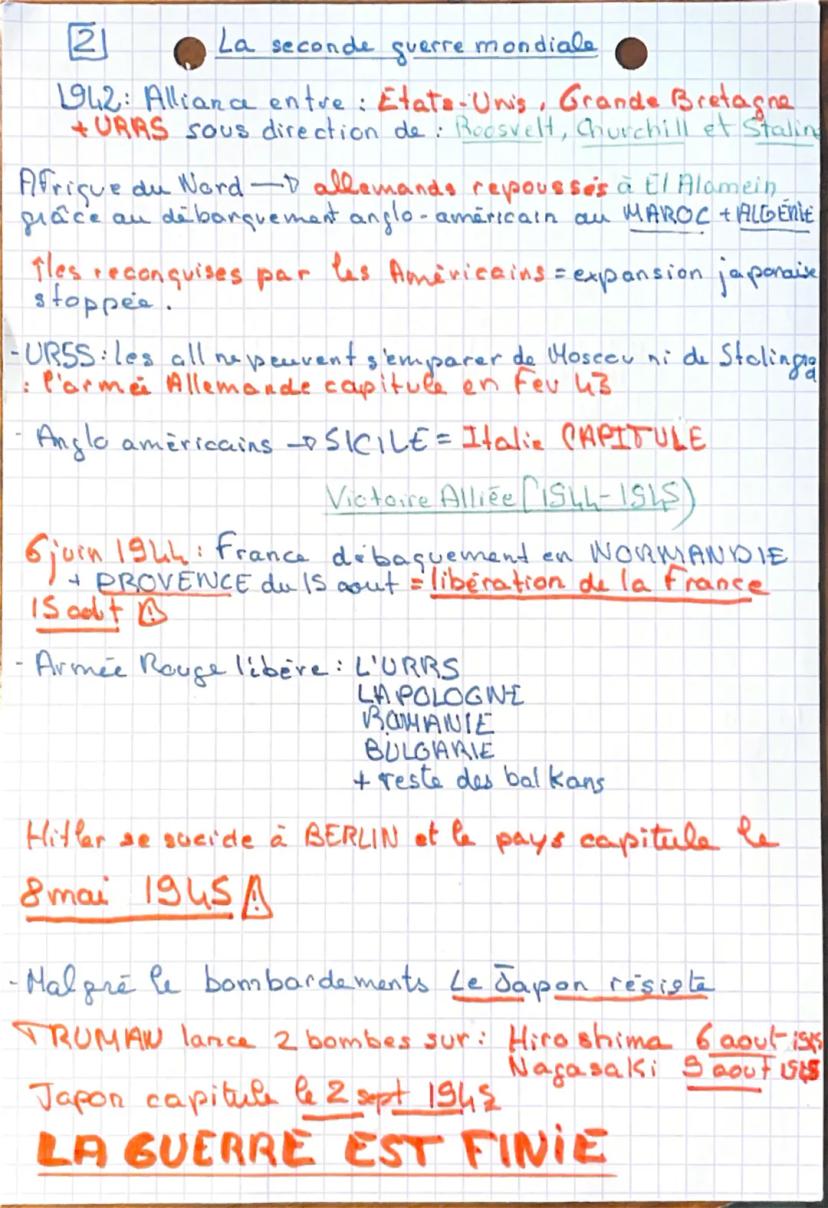 2 La seconde guerre mondiale
1942 : Alliance entre : Etats-Unis, Grande Bretagne
+ URRS sous direction de : Roosvelt, Churchill et Stalin
Afrique du Nord → allemands repoussés à El Alamein
grâce au débarquement anglo-américain au MAROC + ALGÉRIE
Îles reconquises par les Américains = expansion japonaise
stoppée.
- URSS : les all ne peuvent s'emparer de Moscou ni de Stalingrad
: l'armée Allemande capitule en Fev 43
- Anglo américains → SICILE = Italie CAPITULE
Victoire Alliée (1944-1945)
6 juin 1944 : France débaquement en NORMANDIE
+ PROVENCE du 15 aout = libération de la France
15 aout ⚠
- Armée Rouge libère : L'URRS
LA POLOGNE
ROMANIE
BULGARIE
+ reste des balkans
Hitler se suicide à BERLIN et le pays capitule le
8 mai 1945 ⚠
- Malgré le bombardements Le Japon résiste
TRUMAN lance 2 bombes sur : Hiroshima 6 aout 1945
Nagasaki 9 aout 1945
Japon capitule le 2 sept 1945
LA GUERRE EST FINIE